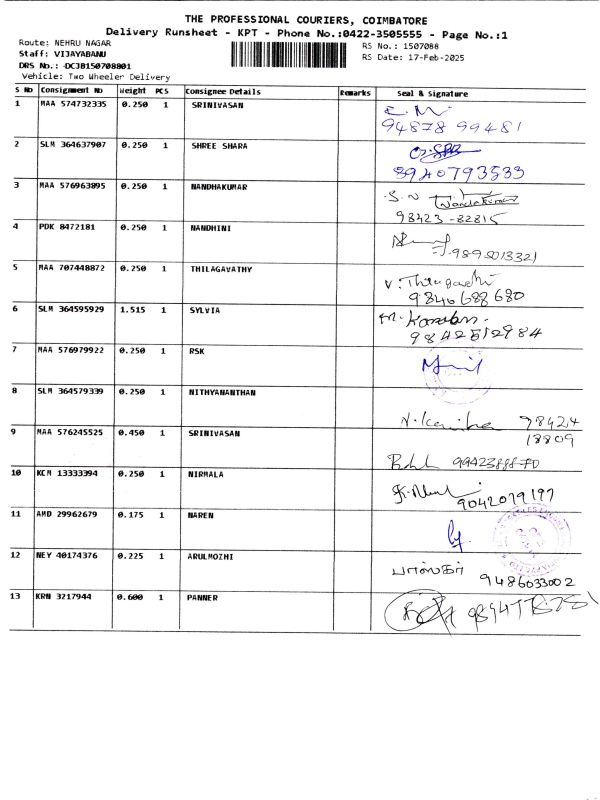 THE PROFESSIONAL COURIERS, COIMBATORE
Delivery Runsheet - KPT - Phone No.:0422-3505555 - Page No.:1
Route: NEHRU NAGAR
RS No.: 1507088
Staff: VIJAYABANU
RS Date: 17-Feb-2025
DRS No.: DCJB150708801
Vehicle: Two Wheeler Delivery
S No Consignment No Weight PCS Consignee Details Remarks Seal & Signature
1 MAA 574732335 0.250 1 SRINIVASAN
94878 99481
2 SLM 364637907 0.250 1 SHREE SHARA
8940793533
3 MAA 576963895 0.250 1 NANDHAKUMAR S.N Nandakumar
98423-82815
4 PDK 8472181 0.250 1 NANDHINI
9895013321
5 MAA 707448872 0.250 1 THILAGAVATHY V. Thilagavathi
9840688680
6 SLM 364595929 1.515 1 SYLVIA
9842512984
7 MAA 576979922 0.250 1 RSK
8 SLM 364579339 0.250 1 NITHYANANTHAN
N. Kavitha 98424
18809
9 MAA 576245525 0.450 1 SRINIVASAN
9942388870
10 KCM 13333394 0.250 1 NIRMALA
9042079197
11 AMD 29962679 0.175 1 NAREN
12 NEY 40174376 0.225 1 ARULMOZHI பாஸ்கர்
9486033002
13 KRN 3217944 0.600 1 PANNER